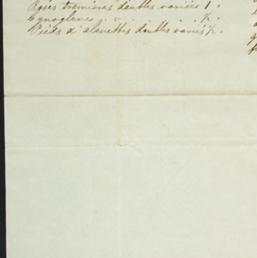 Roses tremieres doubles variées 1.
Cynoglosse . . . . ½.
Pieds d'alouettes doubles variés ½.